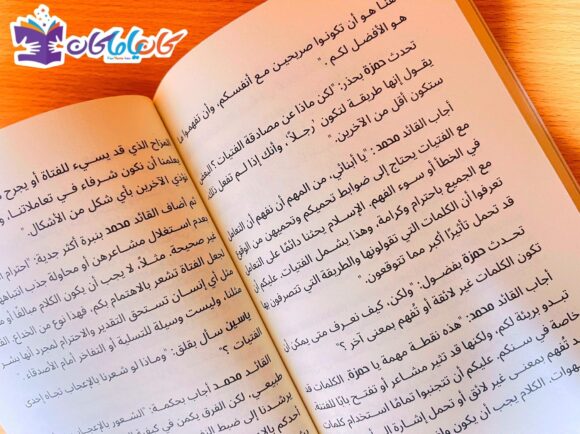 كان ياما كان
هنا هو أن تكونوا صريحين مع أنفسكم، وأن تفهموا ما
هو الأفضل لكم."
تحدث حمزة بحذر: "لكن ماذا عن مصادقة الفتيات؟ البعض
يقول إنها طريقة لتكون 'رجلاً'، وأنك إذا لم تفعل ذلك
ستكون أقل من الآخرين."
أجاب القائد محمد: "يا أبنائي، من المهم أن نفهم أن التعامل
مع الفتيات يحتاج إلى ضوابط تحميكم وتحميهن من الوقوع
في الخطأ أو سوء الفهم. الإسلام يحثنا دائمًا على التعامل
مع الجميع باحترام وكرامة، وهذا يشمل الفتيات. عليكم أن
تعرفوا أن الكلمات التي تقولونها والطريقة التي تتصرفون بها
قد تحمل تأثيرًا أكبر مما تتوقعون."
تحدث حمزة بفضول: "ولكن، كيف نعرف متى يمكن أن
تكون الكلمات غير لائقة أو تُفهم بمعنى آخر؟"
أجاب القائد محمد: "هذه نقطة مهمة يا حمزة. الكلمات قد
تبدو بريئة لكم، ولكنها قد تثير مشاعر أو تفتح بابًا للفتنة
خاصة في سنكم. عليكم أن تتجنبوا تمامًا استخدام كلمات
قد تُفهم بمعنى غير لائق أو تحمل إشارة إلى
الكلام يجب أن يكون
المزاح الذي قد يسيء للفتاة أو يجرح
يعلمنا أن نكون شرفاء في تعاملاتنا،
يؤذي الآخرين بأي شكل من الأشكال."
ثم أضاف القائد محمد بنبرة أكثر جدية: "احترام
بعدم استغلال مشاعرهن أو محاولة جذب انتباهه
غير صحيحة. مثلاً، لا يجب أن يكون الكلام مبالغًا
لجعل الفتاة تشعر بالاهتمام بكم. فهذا نوع من الخداع.
مثل أي إنسان تستحق التقدير والاحترام لمجرد أنها
مثلنا، وليست وسيلة للتسلية أو التفاخر أمام الأصدقاء."
ياسين سأل بقلق: "وماذا لو شعرنا بالإعجاب تجاه إحدى
الفتيات؟"
القائد محمد أجاب بحكمة: "الشعور بالإعجاب
طبيعي، لكن الفرق يكمن في
يرشدنا إلى ضبط
أحدكم